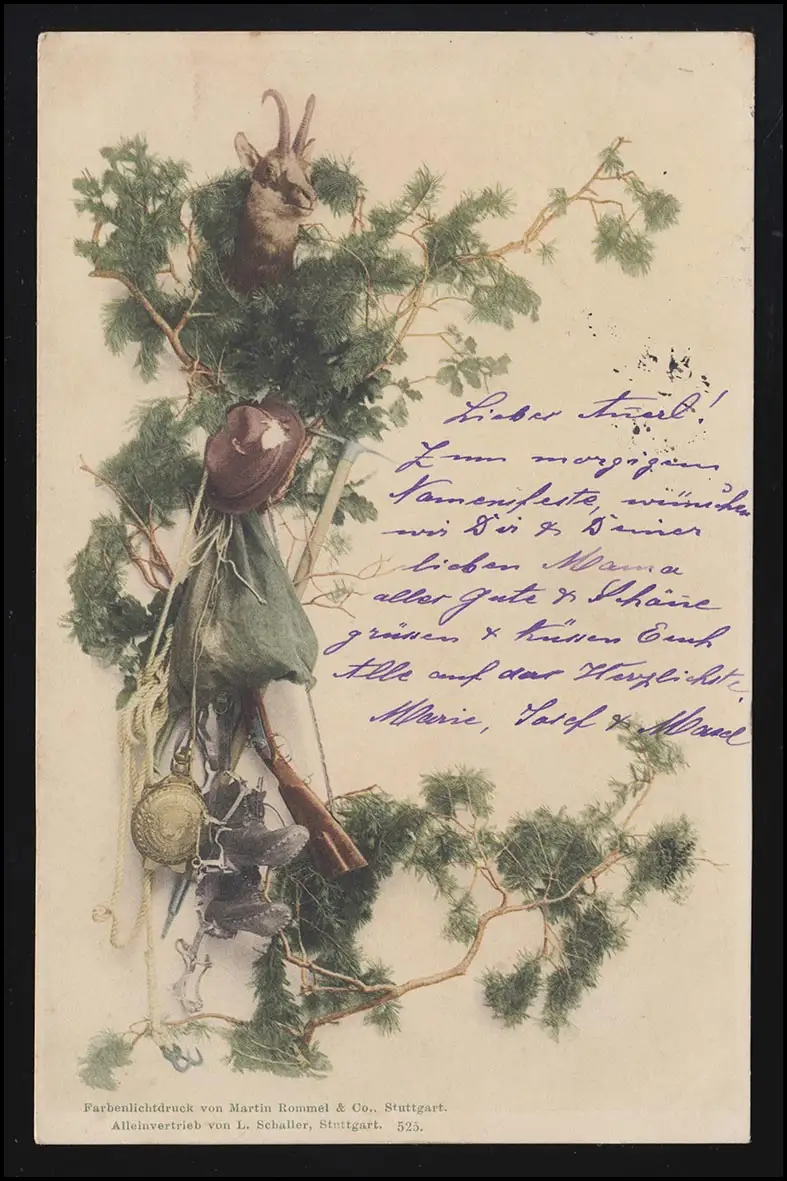 Lieber
Zum morgigen
Namensfeste, wünschen
wir Dir & Deiner
lieben Mama
alles Gute & Schöne
grüssen & küssen Euch
Alle auf das Herzlichste
Marie, Josef &
Farbenlichtdruck von Martin Rommel & Co., Stuttgart.
Alleinvertrieb von L. Schaller, Stuttgart. 525.